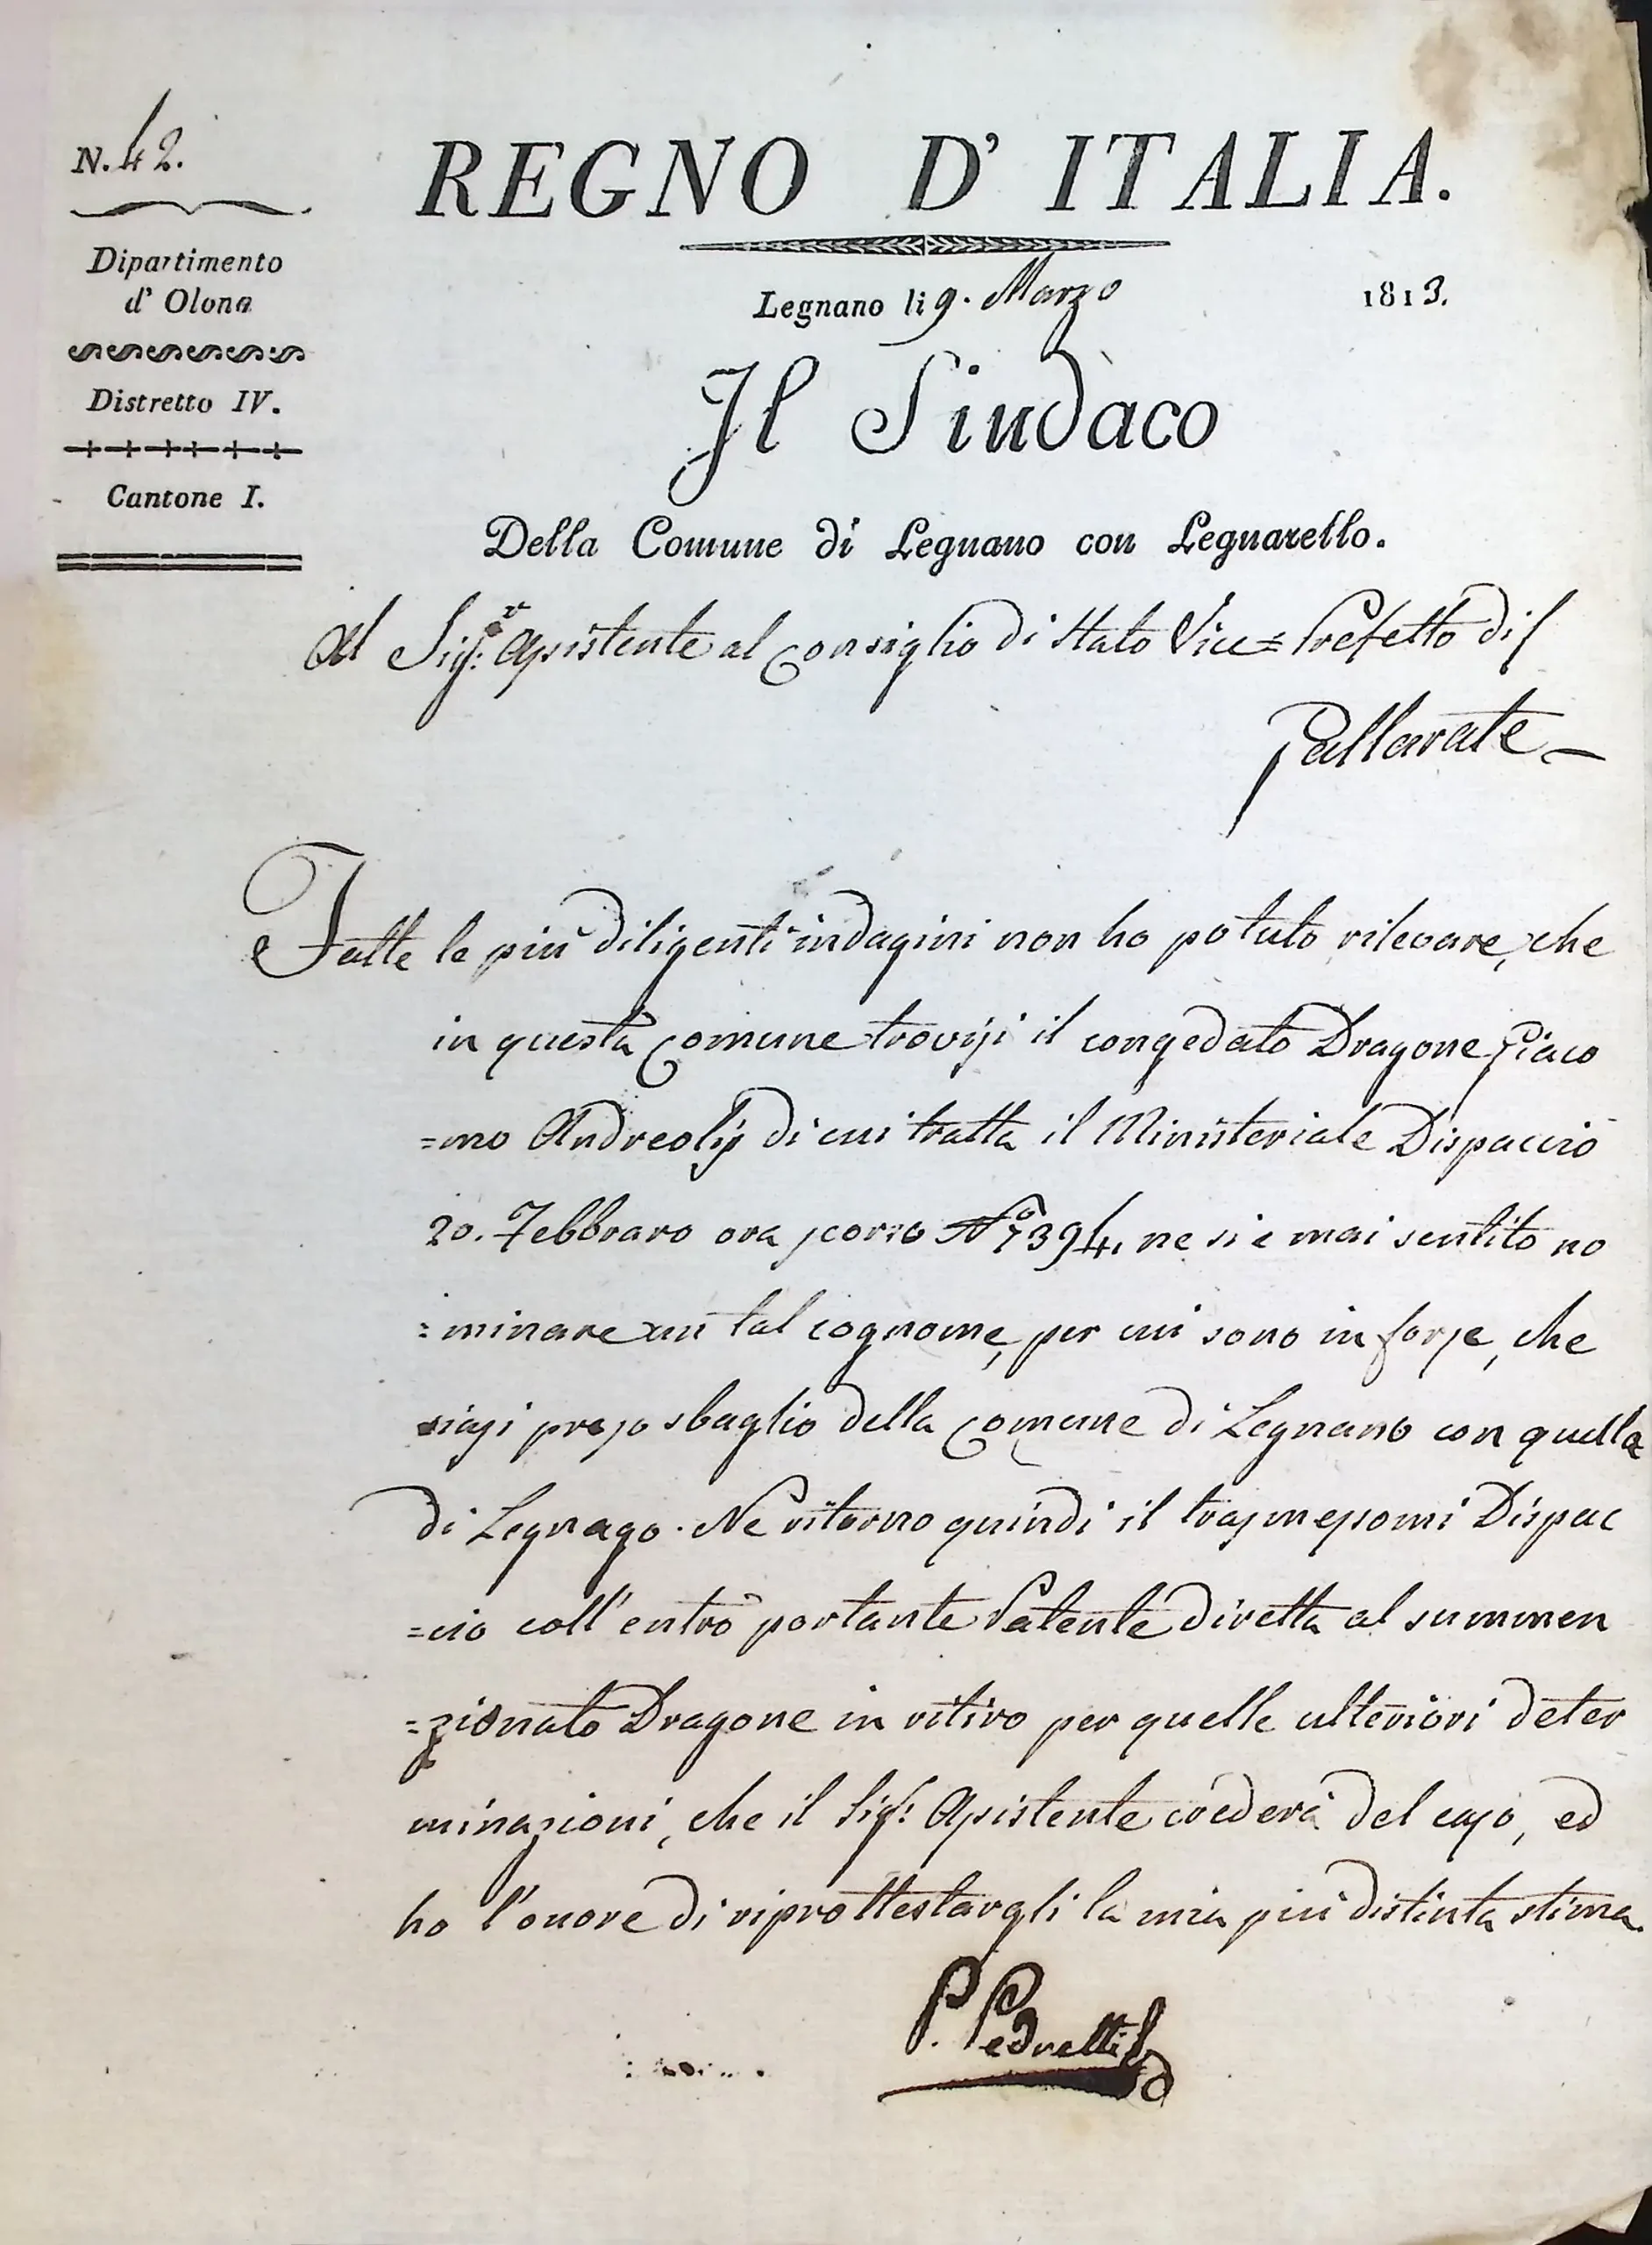 N. 42.
Dipartimento
d' Olona
Distretto IV.
Cantone I.
REGNO D' ITALIA.
Legnano li 9. Marzo 1813.
Il Sindaco
Della Comune di Legnano con Legnarello.
Al Sig.r Assistente al Consiglio di Stato Vice=Prefetto di
Gallarate
Fatte le più diligenti indagini non ho potuto rilevare, che
in questa Comune trovisi il congedato Dragone Giaco
=mo Andreolis di cui tratta il Ministeriale Dispaccio
20. Febbraro ora scorso N.o 7394, ne si è mai sentito no
=minare un tal cognome, per cui sono in forse, che
siasi preso sbaglio della Comune di Legnano con quella
di Legnago. Ne ritorno quindi il trasmessomi Dispac
=cio coll'entro portante Patente diretta al summen
=zionato Dragone in ritiro per quelle ulteriori deter
minazioni, che il Sig.r Assistente crederà del caso, ed
ho l'onore di riprottestargli la mia più distinta stima.
P. Pedretti